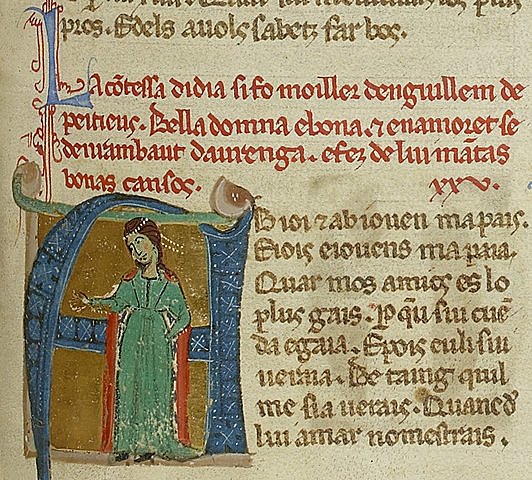 pros. Edels auols sabetz far bos.
La cõtessa didia si fo moiller dengiullem de
peitieus. Bella domna ebona. ⁊ enamoret se
denrambaut daurenga. efez de lui mãtas
bonas cansos. XXV.
A Bioi ⁊ ab iouen mapais.
Eiois eiouens mapaia.
Quar mos amics es lo
plus gais. P q̃ sui cuẽ
da egaia. Epois eu li sui
ueraia. Be taing quil
me sia uerais. Quanc d
lui amar no mestrais.